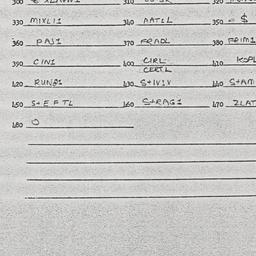 300 310 320
330 MIXLI1 340 AATLL 350 = $
360 PAJ1 370 FRADL 380 FRIM1
390 CIN1 400 CIRL 410
CERTL
420 430 S+IVIV 440 S+AM
450 S+EFTL 460 S+RAG1 470 ZLAT
480 O